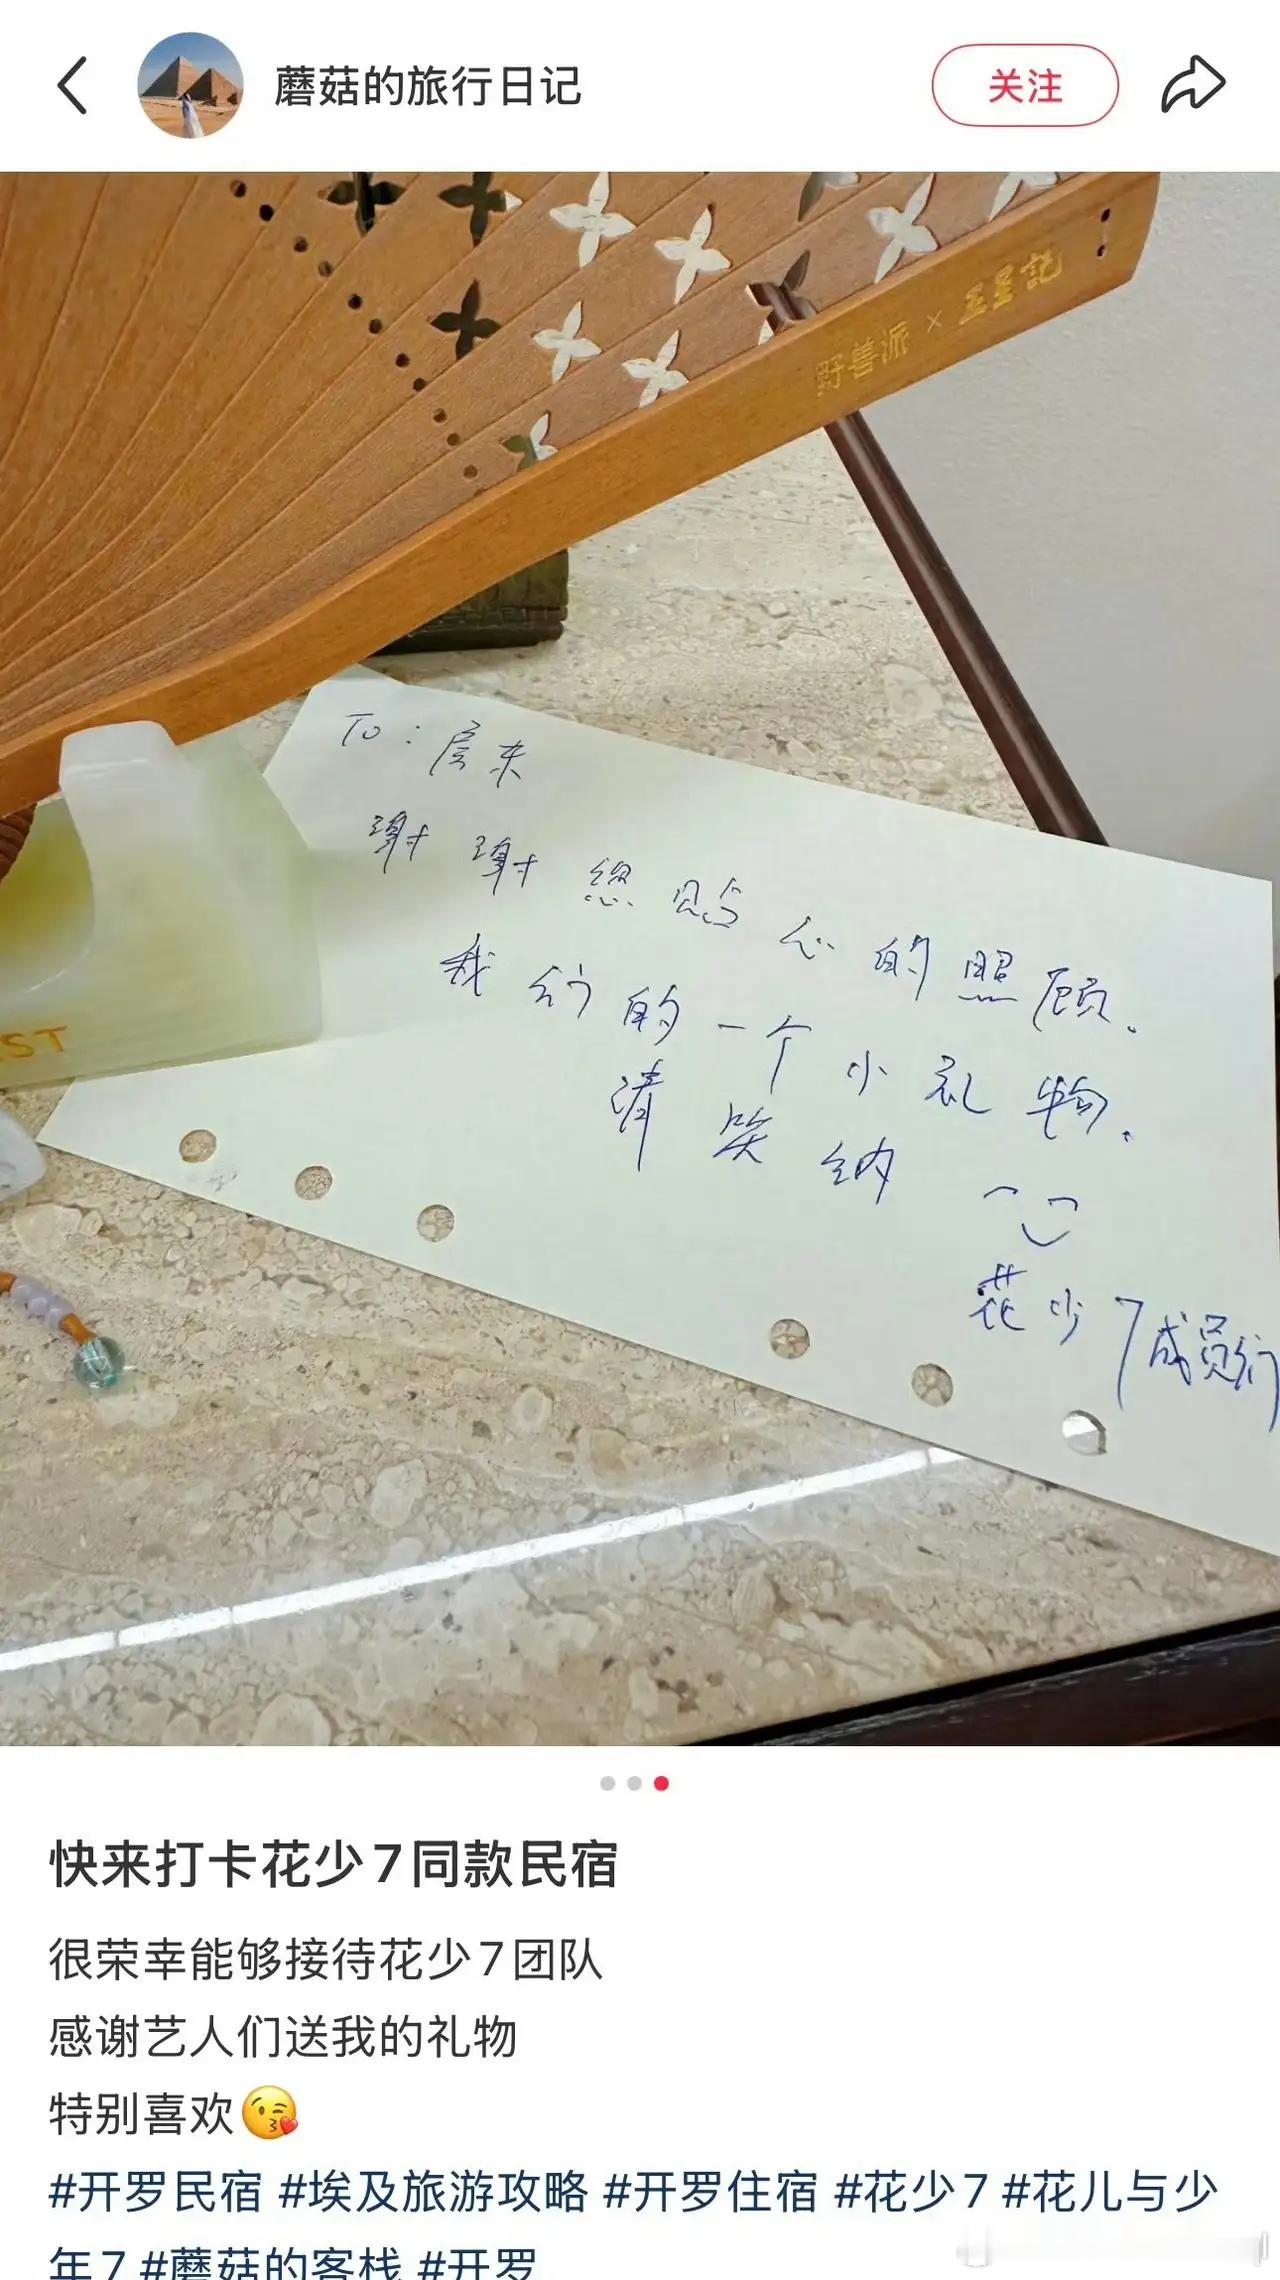 蘑菇的旅行日记
关注
野兽派 × 王星記
To：房东
谢谢您贴心的照顾.
我们的一个小礼物.
请笑纳
花少7成员们
ST
快来打卡花少7同款民宿
很荣幸能够接待花少7团队
感谢艺人们送我的礼物
特别喜欢😘
#开罗民宿 #埃及旅游攻略 #开罗住宿 #花少7 #花儿与少
年7 #蘑菇的客栈 #开罗